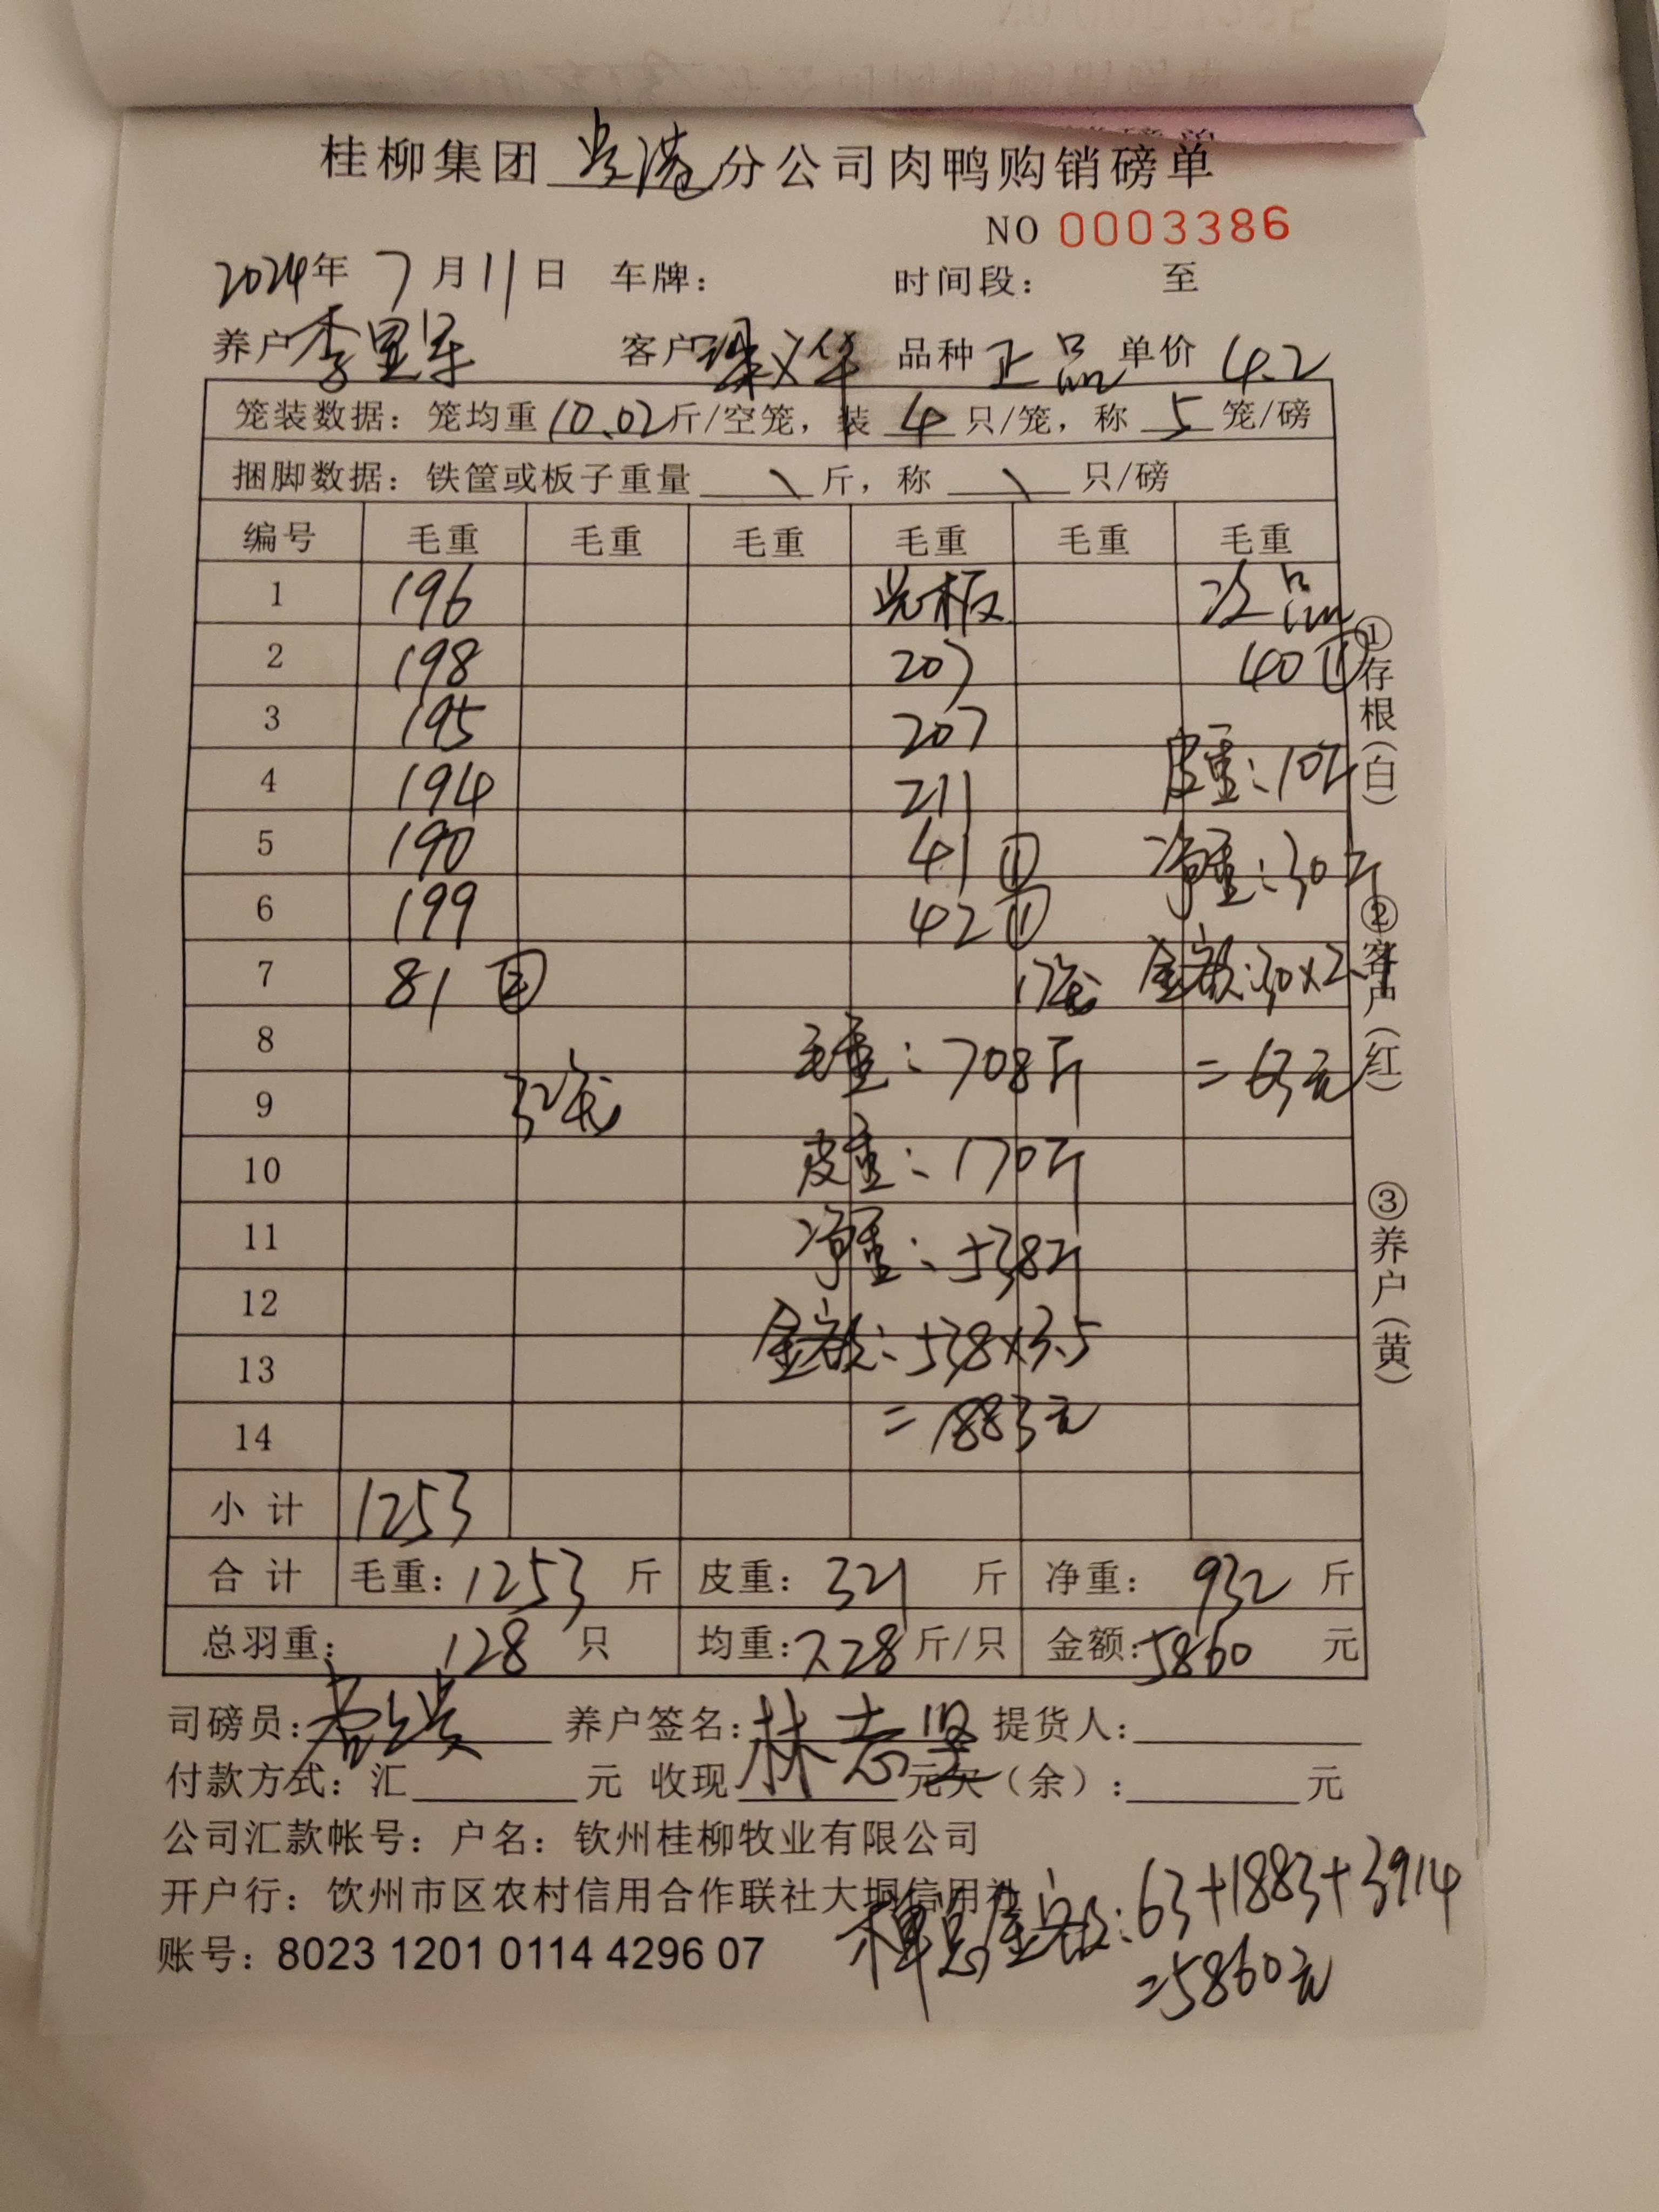 桂柳集团 贵港 分公司肉鸭购销磅单
NO 0003386
2024年 7月11日 车牌: 时间段: 至
养户 李 客户 梁义华 品种 正品 单价 4.2
笼装数据: 笼均重 10.02 斤/空笼, 装 4 只/笼, 称 5 笼/磅
捆脚数据: 铁筐或板子重量 \ 斤, 称 \ 只/磅
编号 毛重 毛重 毛重 毛重 毛重 毛重
1 196 光板 次品
2 198 207 40 ①
3 195 207
4 194 211 皮重: 10斤
5 190 41 ① 净重: 30斤
6 199 42 ①
7 81 ② 17笼 金额: 30×2.1
8 毛重: 708斤 =63元
9 32笼
10 皮重: 170斤
11 净重: 538斤
12 金额: 538×3.5
13
14 =1883元
小计 1253
合计 毛重: 1253 斤 皮重: 321 斤 净重: 932 斤
总羽重: 128 只 均重: 7.28 斤/只 金额: 5860 元
司磅员: 养户签名: 林志坚 提货人:
付款方式: 汇 元 收现 元欠(余): 元
公司汇款帐号: 户名: 钦州桂柳牧业有限公司
开户行: 饮州市区农村信用合作联社大垌信用社
账号: 8023 1201 0114 4296 07
总金额: 63+1883+3914
=5860元
①存根(白)
②客户(红)
③养户(黄)